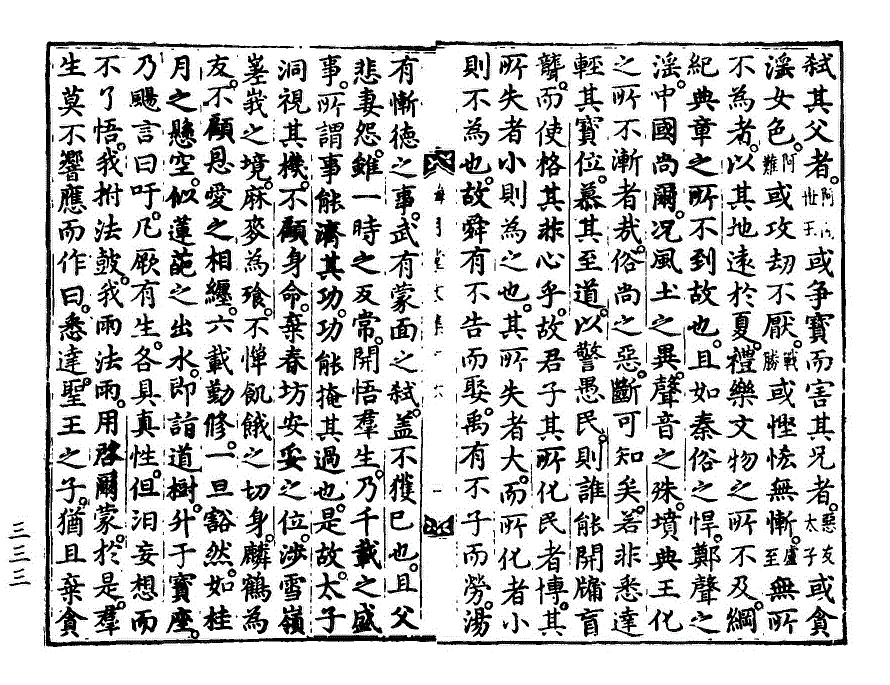 弑其父者。阿闍世王或争寶而害其兄者。惡友太子或貪
淫女色。阿難或攻刧不厭。戰勝或慳悋無慚。盧至無所
不為者。以其地遠於夏。禮樂文物之所不及。綱
紀典章之所不到故也。且如秦俗之悍。鄭聲之
淫。中國尚爾。况風土之異。聲音之殊。墳典王化
之所不漸者哉。俗尚之惡。斷可知矣。若非悉達
輕其寶位。慕其至道。以警愚民。則誰能開牖盲
聾。而使格其非心乎。故君子其所化民者博。其
所失者小則為之也。其所失者大。而所化者小
則不為也。故舜有不告而娶。禹有不子而勞。湯
有慚德之事。武有蒙面之弑。盖不獲已也。且父
悲妻怨。雖一時之反常。開悟羣生。乃千載之盛
事。所謂事能濟其功。功能掩其過也。是故。太子
洞視其機。不顧身命。棄春坊安妥之位。涉雪嶺
峩之境。麻麥為飱。不憚飢餓之切身。麟鶴為
友。不顧恩愛之相纏。六載勤修。一旦豁然。如桂
月之懸空。似蓮葩之出水。即詣道樹。升于寶座。
乃颺言曰吁。凡厥有生。各具真性。但汨妄想而
不了悟。我拊法鼓。我雨法雨。用啓爾蒙。於是。羣
生莫不響應而作曰。悉達聖王之子。猶且棄貪
三三三